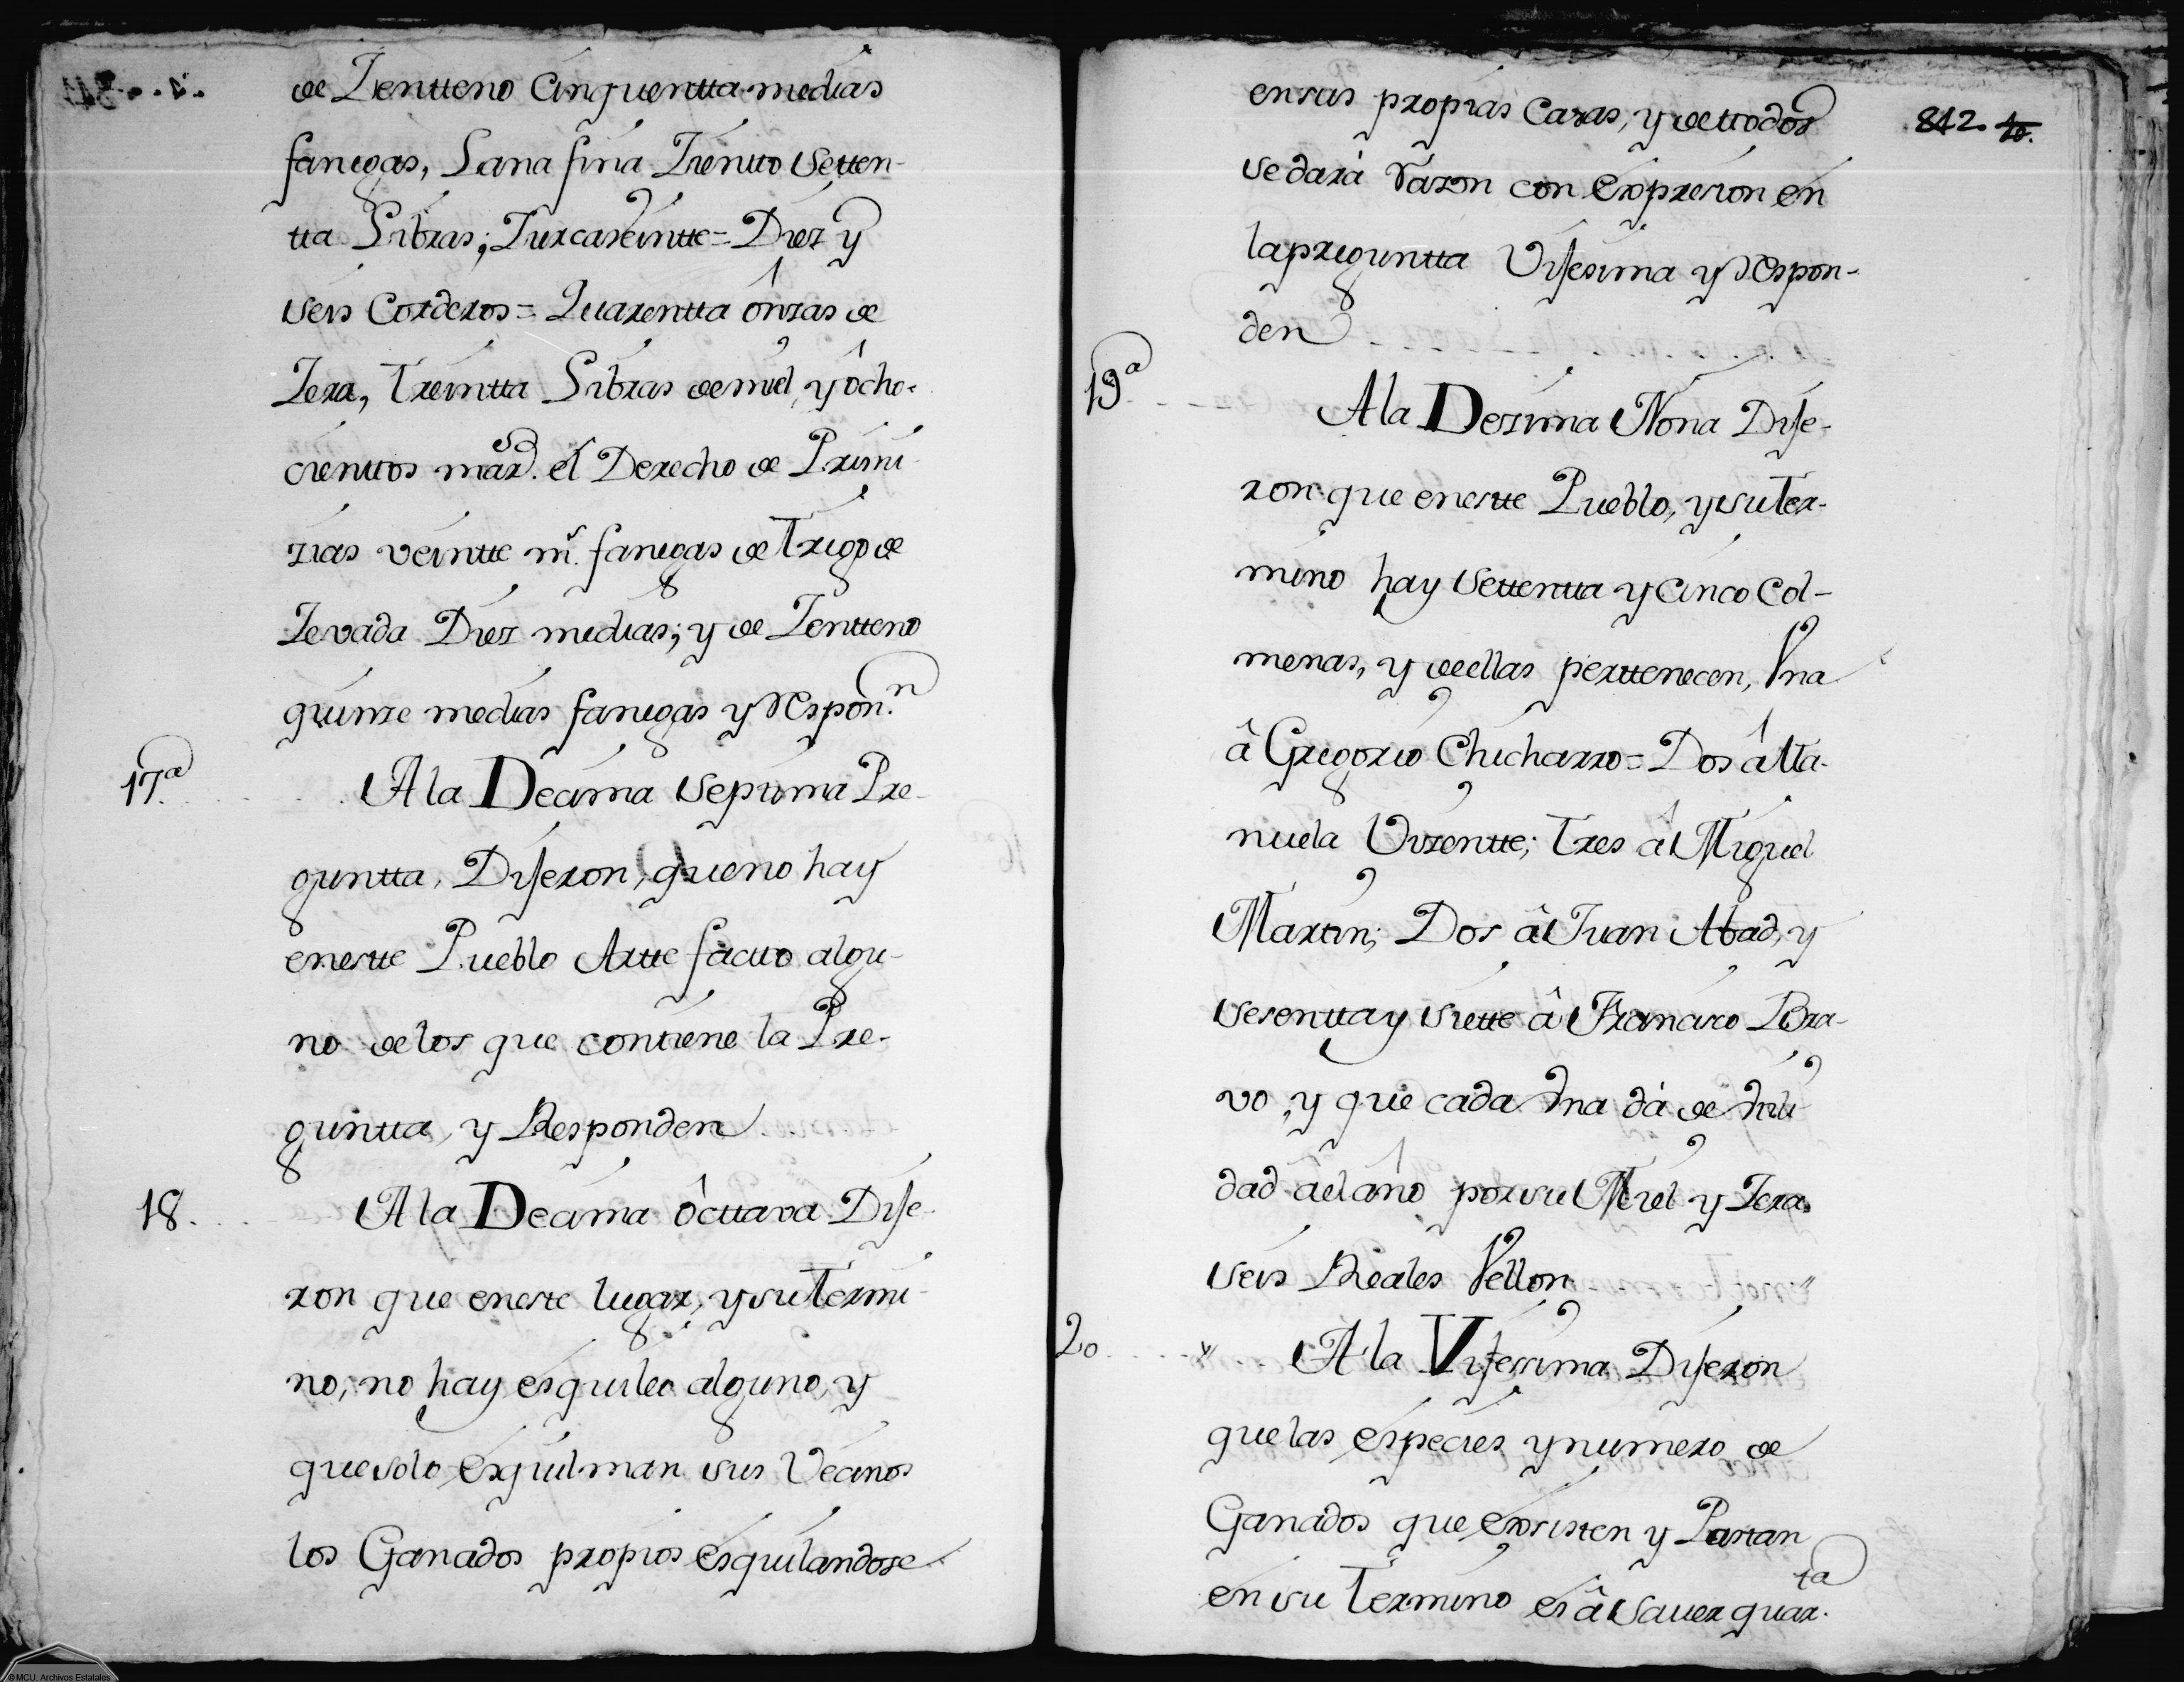 de Zentteno Cinquentta medias
fanegas, Lana fina Zientto Setten-
tta Libras; Turcas veintte = Diez y
seis Corderos = Quarentta ônzas de
Zera, Treintta Libras de miel, y ôcho-
cienttos mar.s el Derecho de Primi-
zias veintte m.s fanegas de Trigo de
Zevada Diez medias; y de Zentteno
quinze medias fanegas y Respon.n
17.a
A la Decima Septima Pre-
guntta, Dijeron, que no hay
en estte Pueblo Artte factto algu-
no de los que contiene la Pre-
guntta, y Responden
18.
A la Decima ôcttava Dije-
ron que en este lugar, y su Termi-
no, no hay esquileo alguno, y
que solo esquilman sus Vecinos
los Ganados propios esquilandose
842. 10.
en sus propias Casas, y de ttodos
se dará razon con expresion en
la preguntta Vijesima y Respon-
den
19.a
A la Dezima Nona Dije-
ron que en estte Pueblo, y su Ter-
mino hay Settentta y Cinco Col-
menas, y de ellas perttenecen, Vna
â Gregorio Chicharro = Dos â Ma-
nuela Vizentte; Tres â Miguel
Martin; Dos â Juan Abad, y
Sesentta y Siette â Francisco Bra-
vo, y que cada Vna dá de Vtili-
dad âel año por su Miel y Zera
seis Reales Vellon
20
A la Vijessima Dijeron
que las especies y numero de
Ganados que existen y Pastan
en su Termino es â Saver quar.ta
© MCU. Archivos Estatales